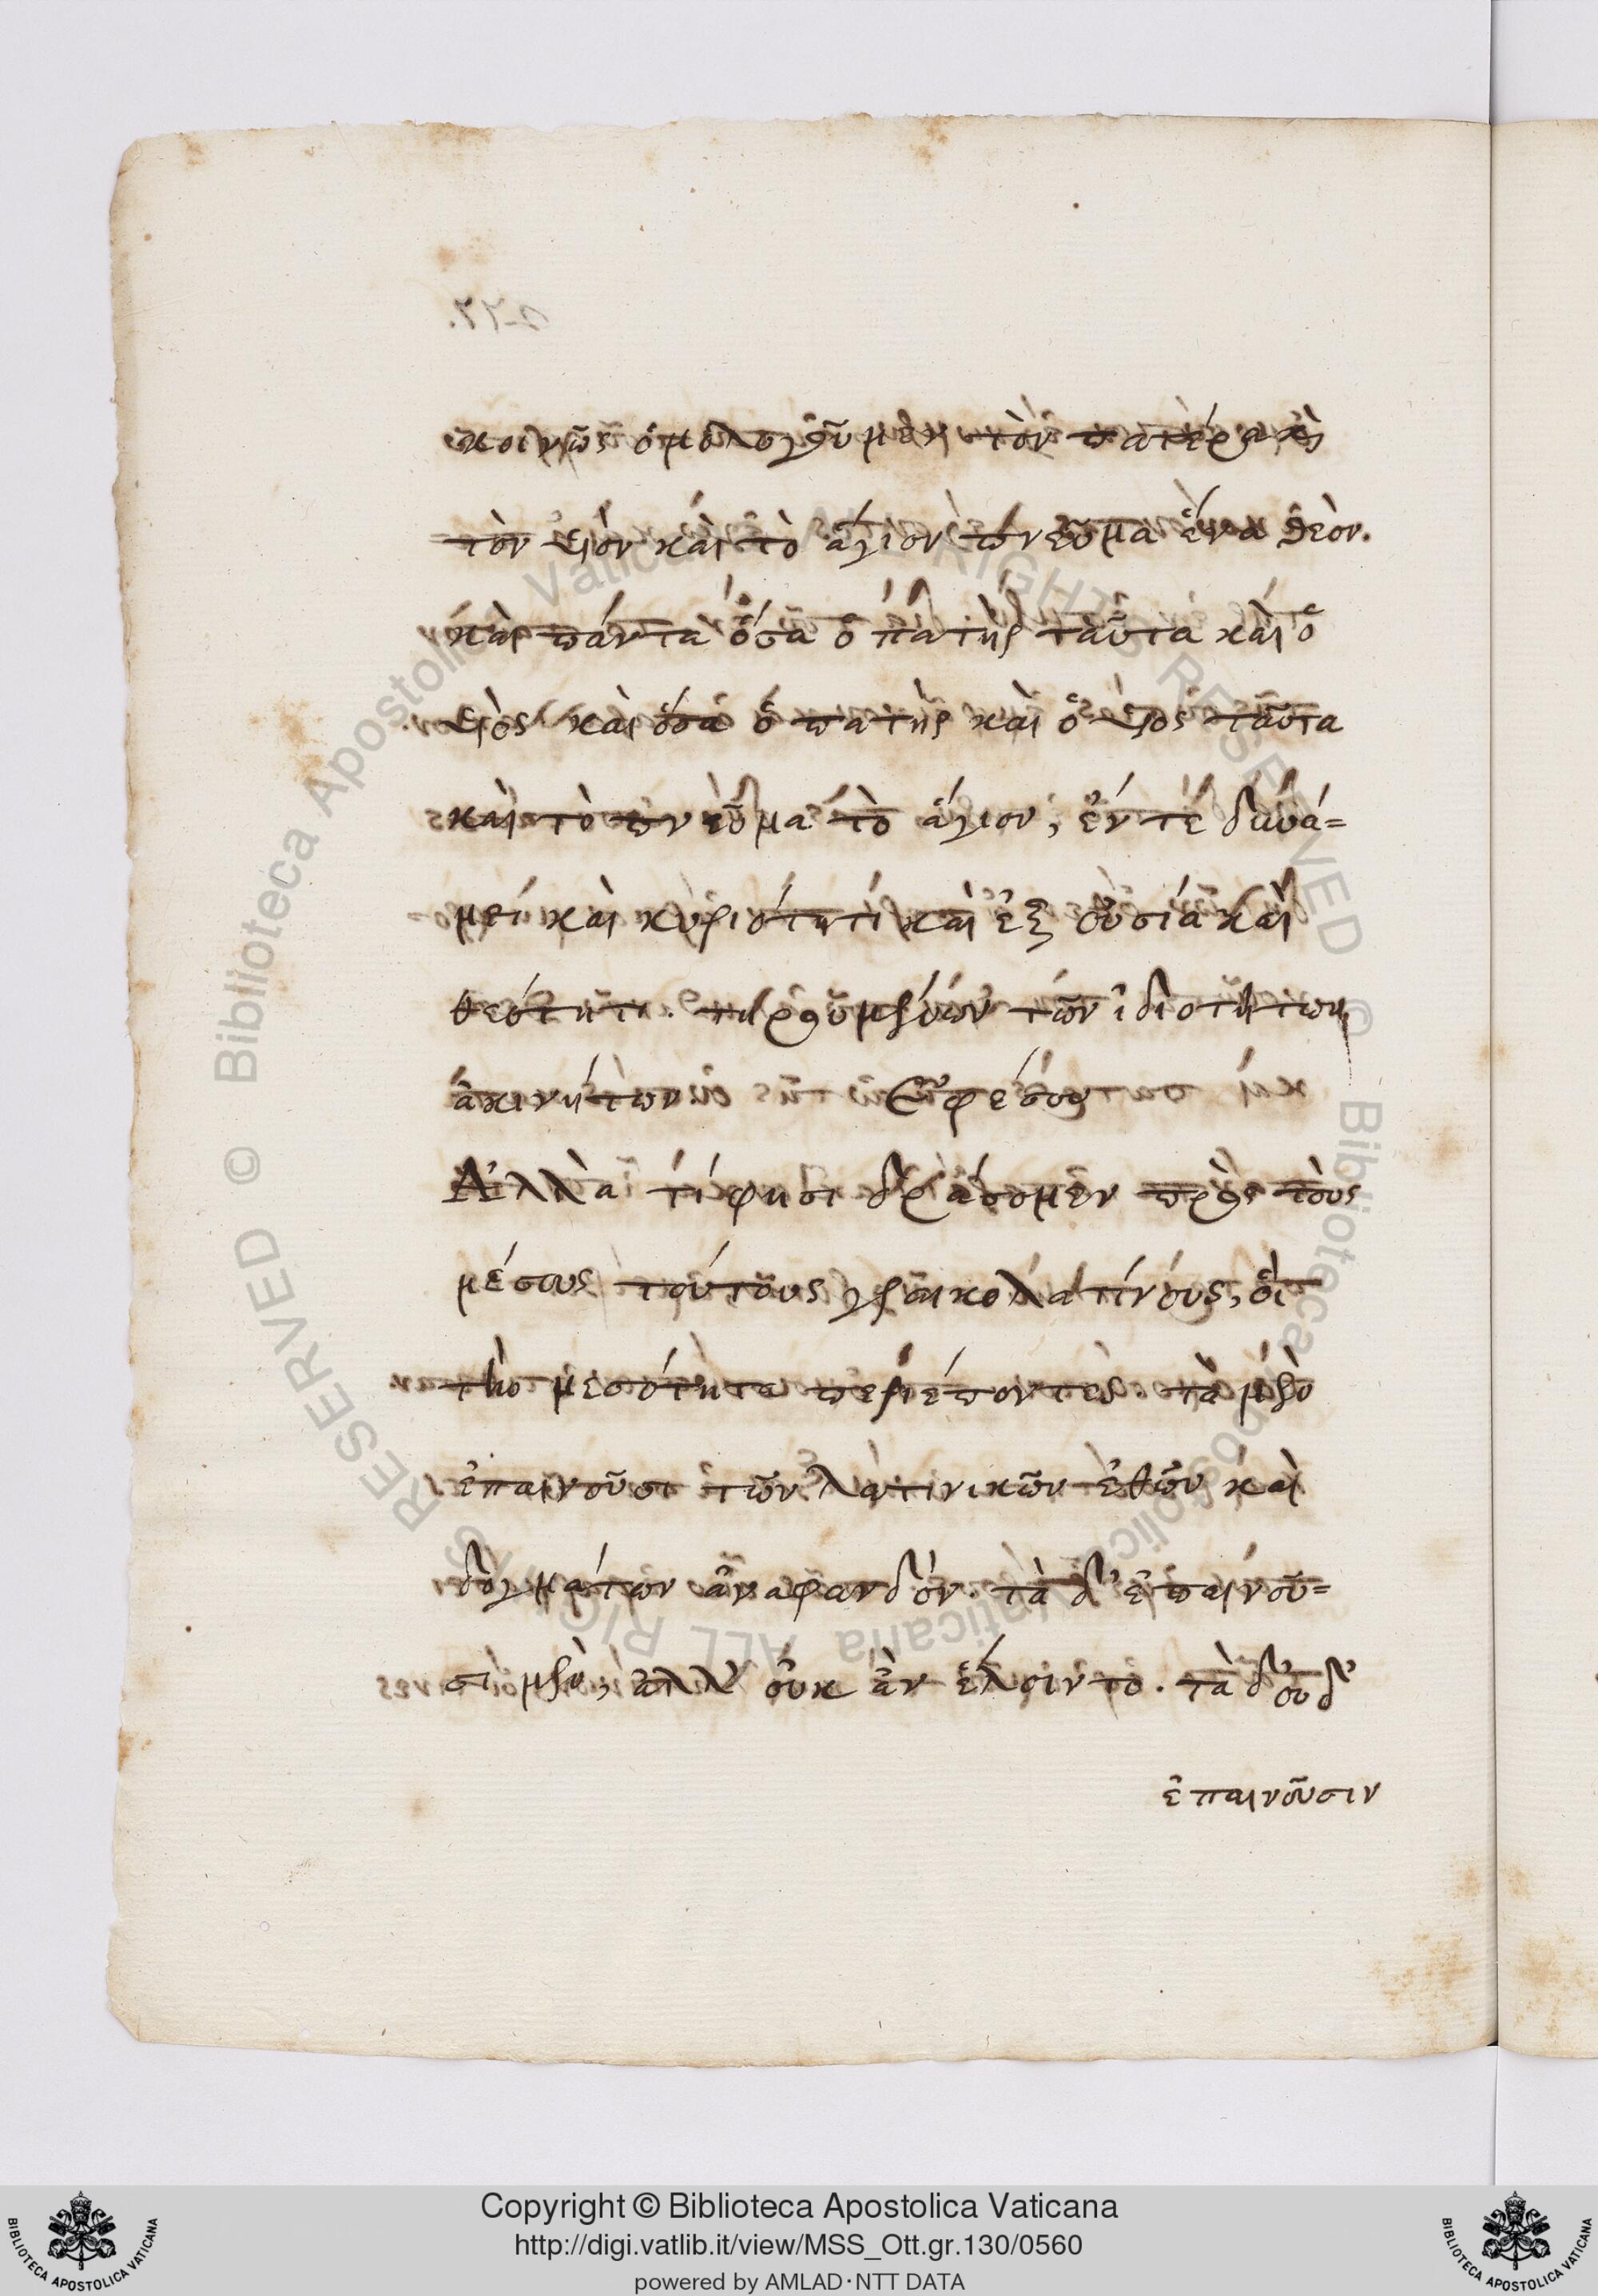 κοινῶς ὁμολογοῦμεν τὸν πατέρα κὶ
τὸν υἱὸν καὶ τὸ ἅγιον πνεῦμα ἕνα θεὸν.
καὶ πάντα ὅσα ὁ πατὴρ ταῦτα καὶ ὁ
υἱὸς καὶ ὅσα ὁ πατὴρ καὶ ὁ υἱὸς ταῦτα
καὶ τὸ πνεῦμα τὸ ἅγιον, ἐν τε δυνά=
μει καὶ κυριότητι καὶ ἐξουσία καὶ
θεότητι. τηρουμένων τῶν ἰδιοτήτων
ἀκινήτων Ἐφέσου
Ἀλλὰ τί φησι δράσομεν πρὸς τοὺς
μέσους τούτους γραικολατίνους, οἳ
τὴν μεσότητα περιέποντες. τὰ μὲν
ἐπαινοῦσι τῶν λατινικῶν ἐθῶν καὶ
δογμάτων ἀναφανδόν. τὰ δ' ἐπαινοῦ=
σι μὲν, ἀλλ' οὐκ ἂν ἕλοιντο. τὰ δ' οὐδ'
ἐπαινοῦσιν
277.
Biblioteca Apostolica Vaticana ALL RIGHTS RESERVED ©
Biblioteca Apostolica Vaticana ALL RIGHTS RESERVED ©
Copyright © Biblioteca Apostolica Vaticana
http://digi.vatlib.it/view/MSS_Ott.gr.130/0560
powered by AMLAD·NTT DATA
BIBLIOTECA APOSTOLICA VATICANA
BIBLIOTECA APOSTOLICA VATICANA